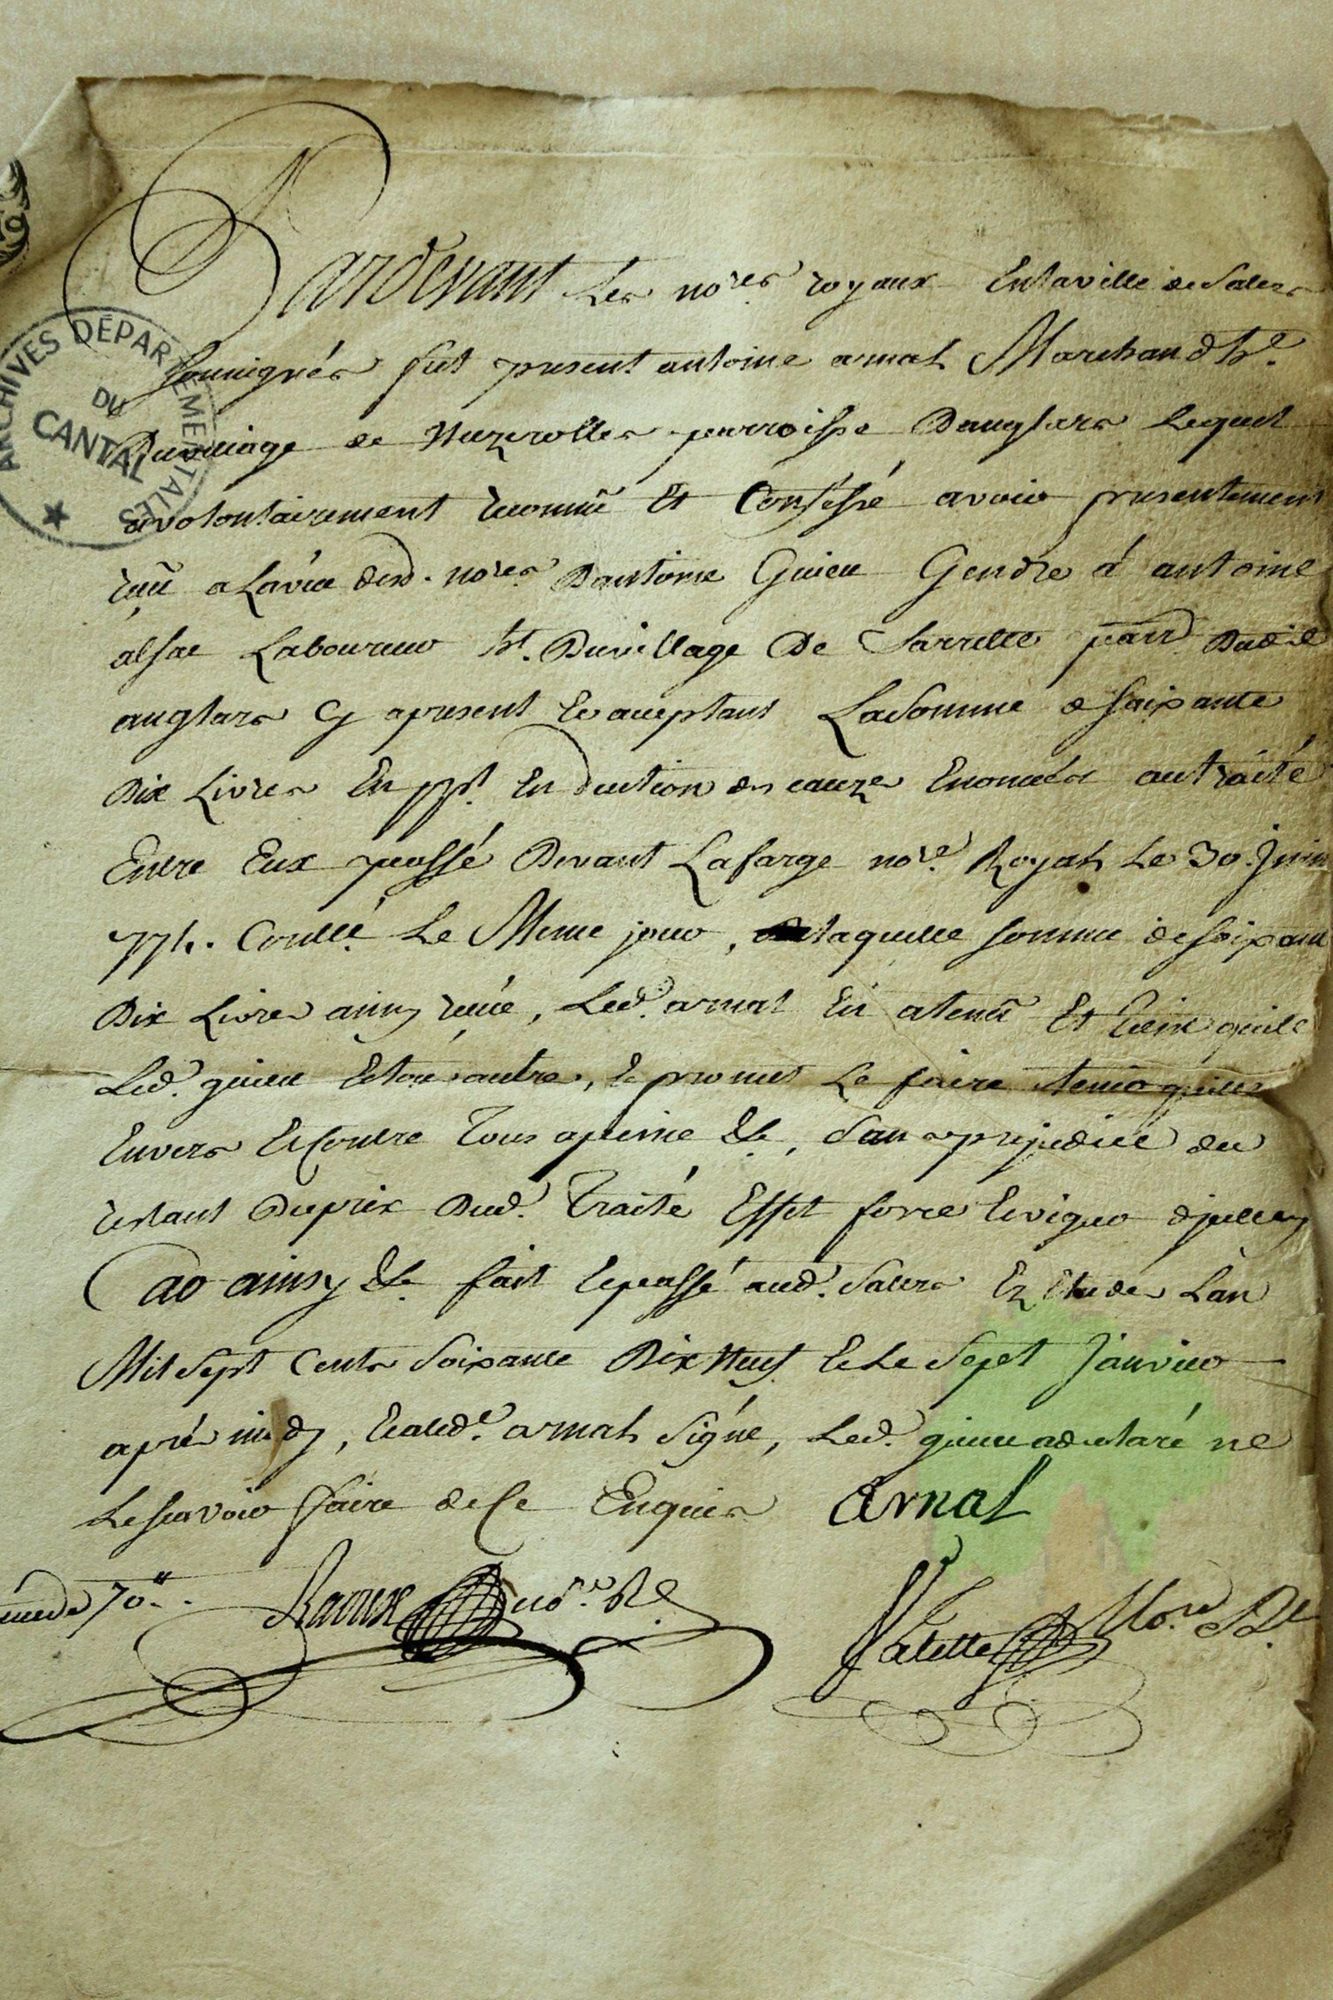 Pardevant Les no.res royaux En la ville de Salers
Soussignés fut present antoine arnal Marchand h.t
Du village de Nuzerolles parroisse Danglars Lequel
a volontairement reconnu Et Confessé avoir presentement
reçu a La vüe desd. no.res D'antoine Guieu Gendre à antoine
alsac Laboureur h.t Du village De Sarrette parr. Dud.
anglars Cy apresent Et aceptant La Somme de soixante
Dix Livres En Et En Duction des cauzes Enoncées au traité
Entre Eux passé Devant Lafarge no.re Royal Le 30. Juin
774. Conllé Le Meme jour, laquelle somme de soixante
Dix Livres ainsy reçue, Led. arnal En a tenu Et tient quitte
Led. guieu Et tous autres, Et promet Le faire tenir quitte
Envers Et Contre Tous apeine &c, Sans prejudice du
restant Du prix Dud. Traité Effet force Et vigueur
Car ainsy &c fait Et passé aud. Salers Ez Etudes L'an
Mil Sept Cents Soixante Dix Neuf Et Le Sept Janvier
après midy, Et a led. arnal Signé, Led. guieu a declaré ne
Le scavoir faire de Ce Enquis Arnal
70.tt Raoux no.re R.l Valette No.re R.l
ARCHIVES DÉPARTEMENTALES
DU
CANTAL